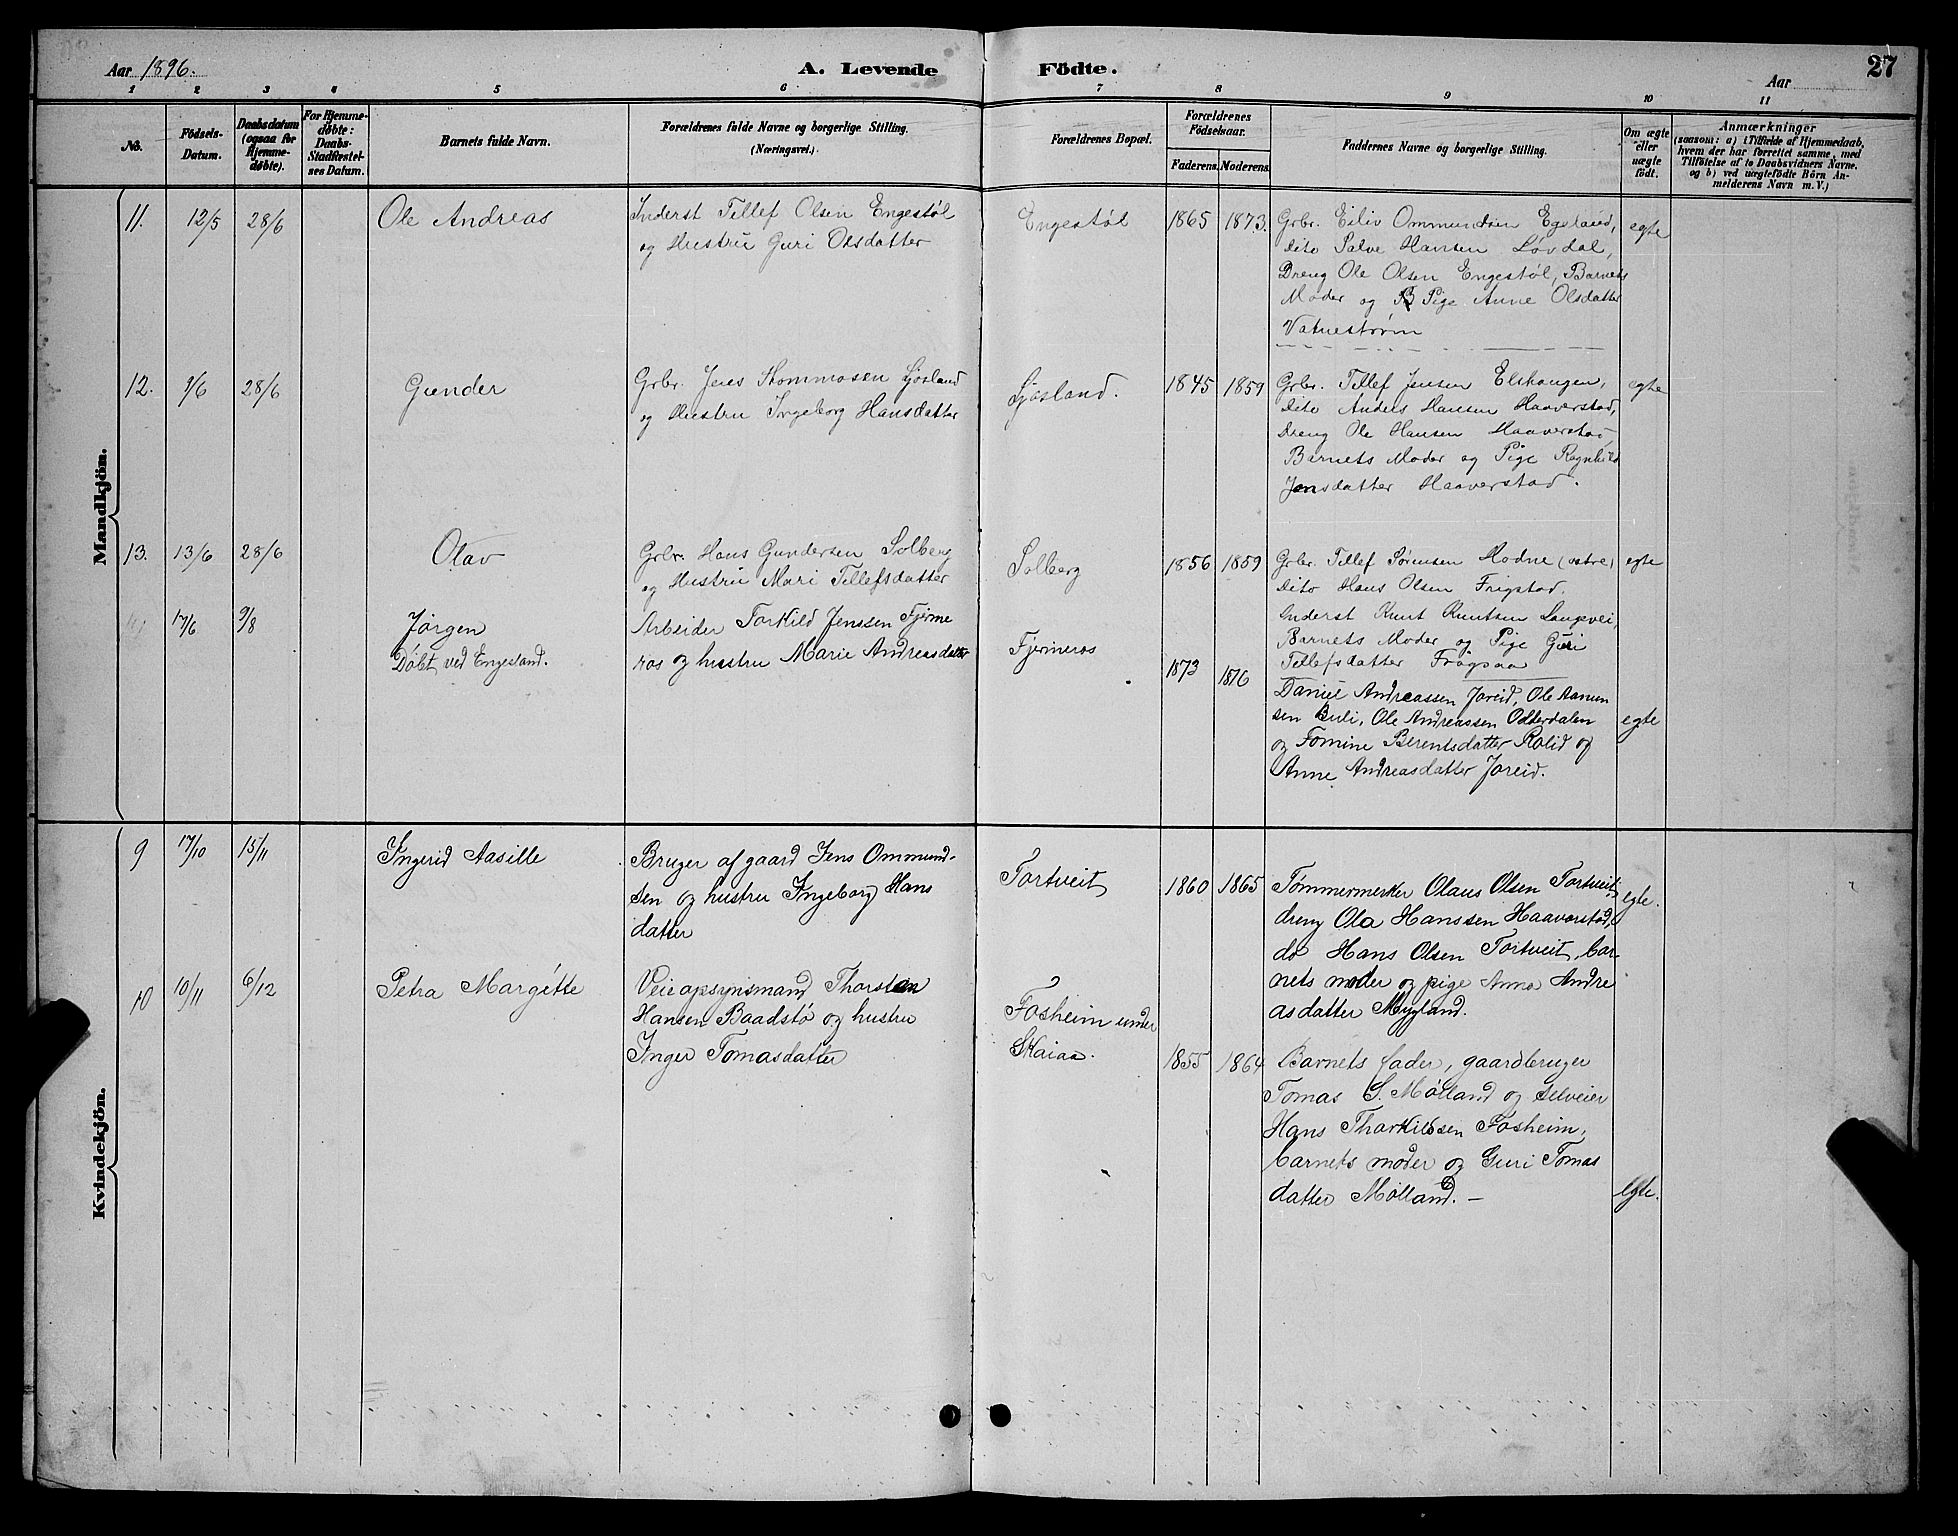 Aar 1896.
A. Levende Födte.
Aar
27
1 2 3 4 5 6 7 8 9 10 11
No.
Födsels-
Datum.
Daabsdatum
(ogsaa for
Hjemme-
døbte).
For Hjemme-
døbte:
Daabs-
Stadfæstel-
ses Datum.
Barnets fulde Navn.
Forældrenes fulde Navne og borgerlige Stilling.
(Næringsvei.)
Forældrenes Bopæl.
Forældrenes
Födselsaar.
Faderens. Moderens.
Faddernes Navne og borgerlige Stilling.
Om ægte
eller
uægte
født.
Anmærkninger
(saasom: a) i Tilfælde af Hjemmedaab,
hvem der har forrettet samme, med
Tilföielse af to Daabsvidners Navne.
og b) ved uægtefødte Börn An-
melderens Navn m. V.)
Mandkjön.
11. 12/5 28/6
Ole Andreas
Inderst Tellef Olsen Engestøl
og Hustru Guri Olsdatter
Engestøl
1865 1873.
Grbr. Eiliv Ommundsen Egeland,
dito Salve Hansen Løvdal,
Dreng Ole Olsen Engestøl, Barnets
Moder og Pige Anne Olsdatter
Vatnestrøm
egte
12. 9/6 28/6
Gunder
Grbr. Jens Thommasen Ljosland
og Hustru Ingeborg Hansdatter
Ljosland.
1845 1859
Grbr. Tellef Jensen Elshaugen,
dito Anders Hansen Haaverstad,
dreng Ole Hansen Haaverstad,
Barnets Moder og Pige Ragnhild
Jensdatter Haaverstad.
egte
13. 13/6 28/6
Olav
Grbr. Hans Gundersen Solberg
og Hustru Mari Tellefsdatter
Solberg
1856 1859
Grbr. Tellef Sørensen Hodne (østre)
dito Hans Olsen Frigstad.
Inderst Knut Knutsen Laupvei,
Barnets Moder og Pige Guri
Tellefsdatter
egte
14. 17/6 9/8
Jørgen
Døbt ved Engesland.
Arbeider Torkild Jenssen Fjerme
ros og hustru Marie Andreasdatter
Fjermeros
1873 1876
Daniel Andreassen Joreid, Ole Aanun
sen Buli, Ole Andreassen Odderdalen
og Tomine Berentsdatter Rolid og
Anne Andreasdatter Joreid.
egte
Kvindekjön.
9 17/10 15/11
Ingerid Aasille
Bruger af gaard Jens Ommund-
sen og hustru Ingeborg Hans
datter
Tortveit
1860 1865
Tømmermerker Olaus Olsen Tortveit,
dreng Ola Hanssen Haaverstad,
do Hans Olsen Tortveit, bar-
nets moder og pige Anna Andre
asdatter Mygland.
egte.
10 10/11 6/12
Petra Margitte
Veieopsynsmand Thorsten
Hansen Baadstø og hustru
Inger Tomasdatter
Fosheim under
Skaiaa.
1855 1864
Barnets fader, gaardbruger
Tomas S. Mølland og selveier
Hans Thorkildsen Fosheim,
barnets moder og Guri Tomas
datter Mølland. –
Egte.